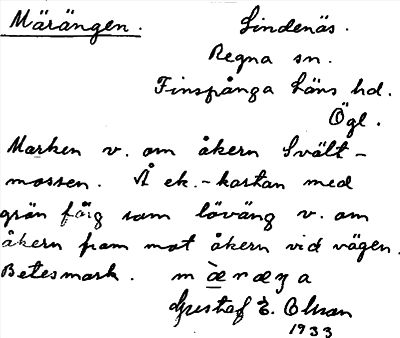 Märängen. Lindenäs.
Regna sn.
Finspånga Läns hd.
Ögl.
Marken v. om åkern Svält-
mossen. Å ek.-kartan med
grön färg som löväng v. om
åkern fram mot åkern vid vägen.
Betesmark. mæ̀ræŋa
Gustaf E. Olsson
1933